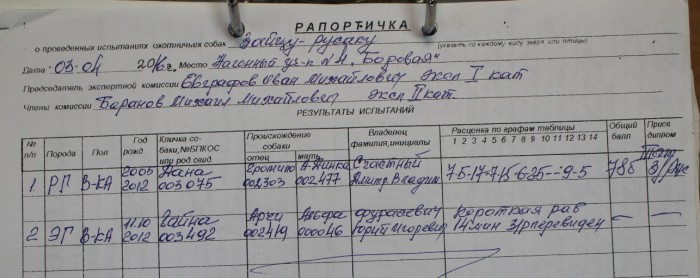 РАПОРТИЧКА
о проведенных испытаниях охотничьих собак Зайцу-русаку
(указать по каждому виду зверя или птицы)
Дата 03.04 2016г. Место Нагонный уч-к п.Н. "Боровая"
Председатель экспертной комиссии Евграфов Иван Михайлович эксп I кат
Члены комиссии Баранов Михаил Михайлович эксп II кат.
РЕЗУЛЬТАТЫ ИСПЫТАНИЙ
№ п/п Порода Пол Год рожд Кличка собаки, №БПКОС или род свид Происхождение собаки отец мать Владелец фамилия, инициалы Расценка по графам таблицы 1 2 3 4 5 6 7 8 9 10 11 12 13 14 Общий балл Присв диплом
1 РГ В-ка 2012 003075 002477 Счастный 9-5 78б
2 ЭГ В-ка 11.10 2012 Гайна 003492 Арчи 002419 Альфа 000046 Юрий Игоревич Короткая раб 14 мин